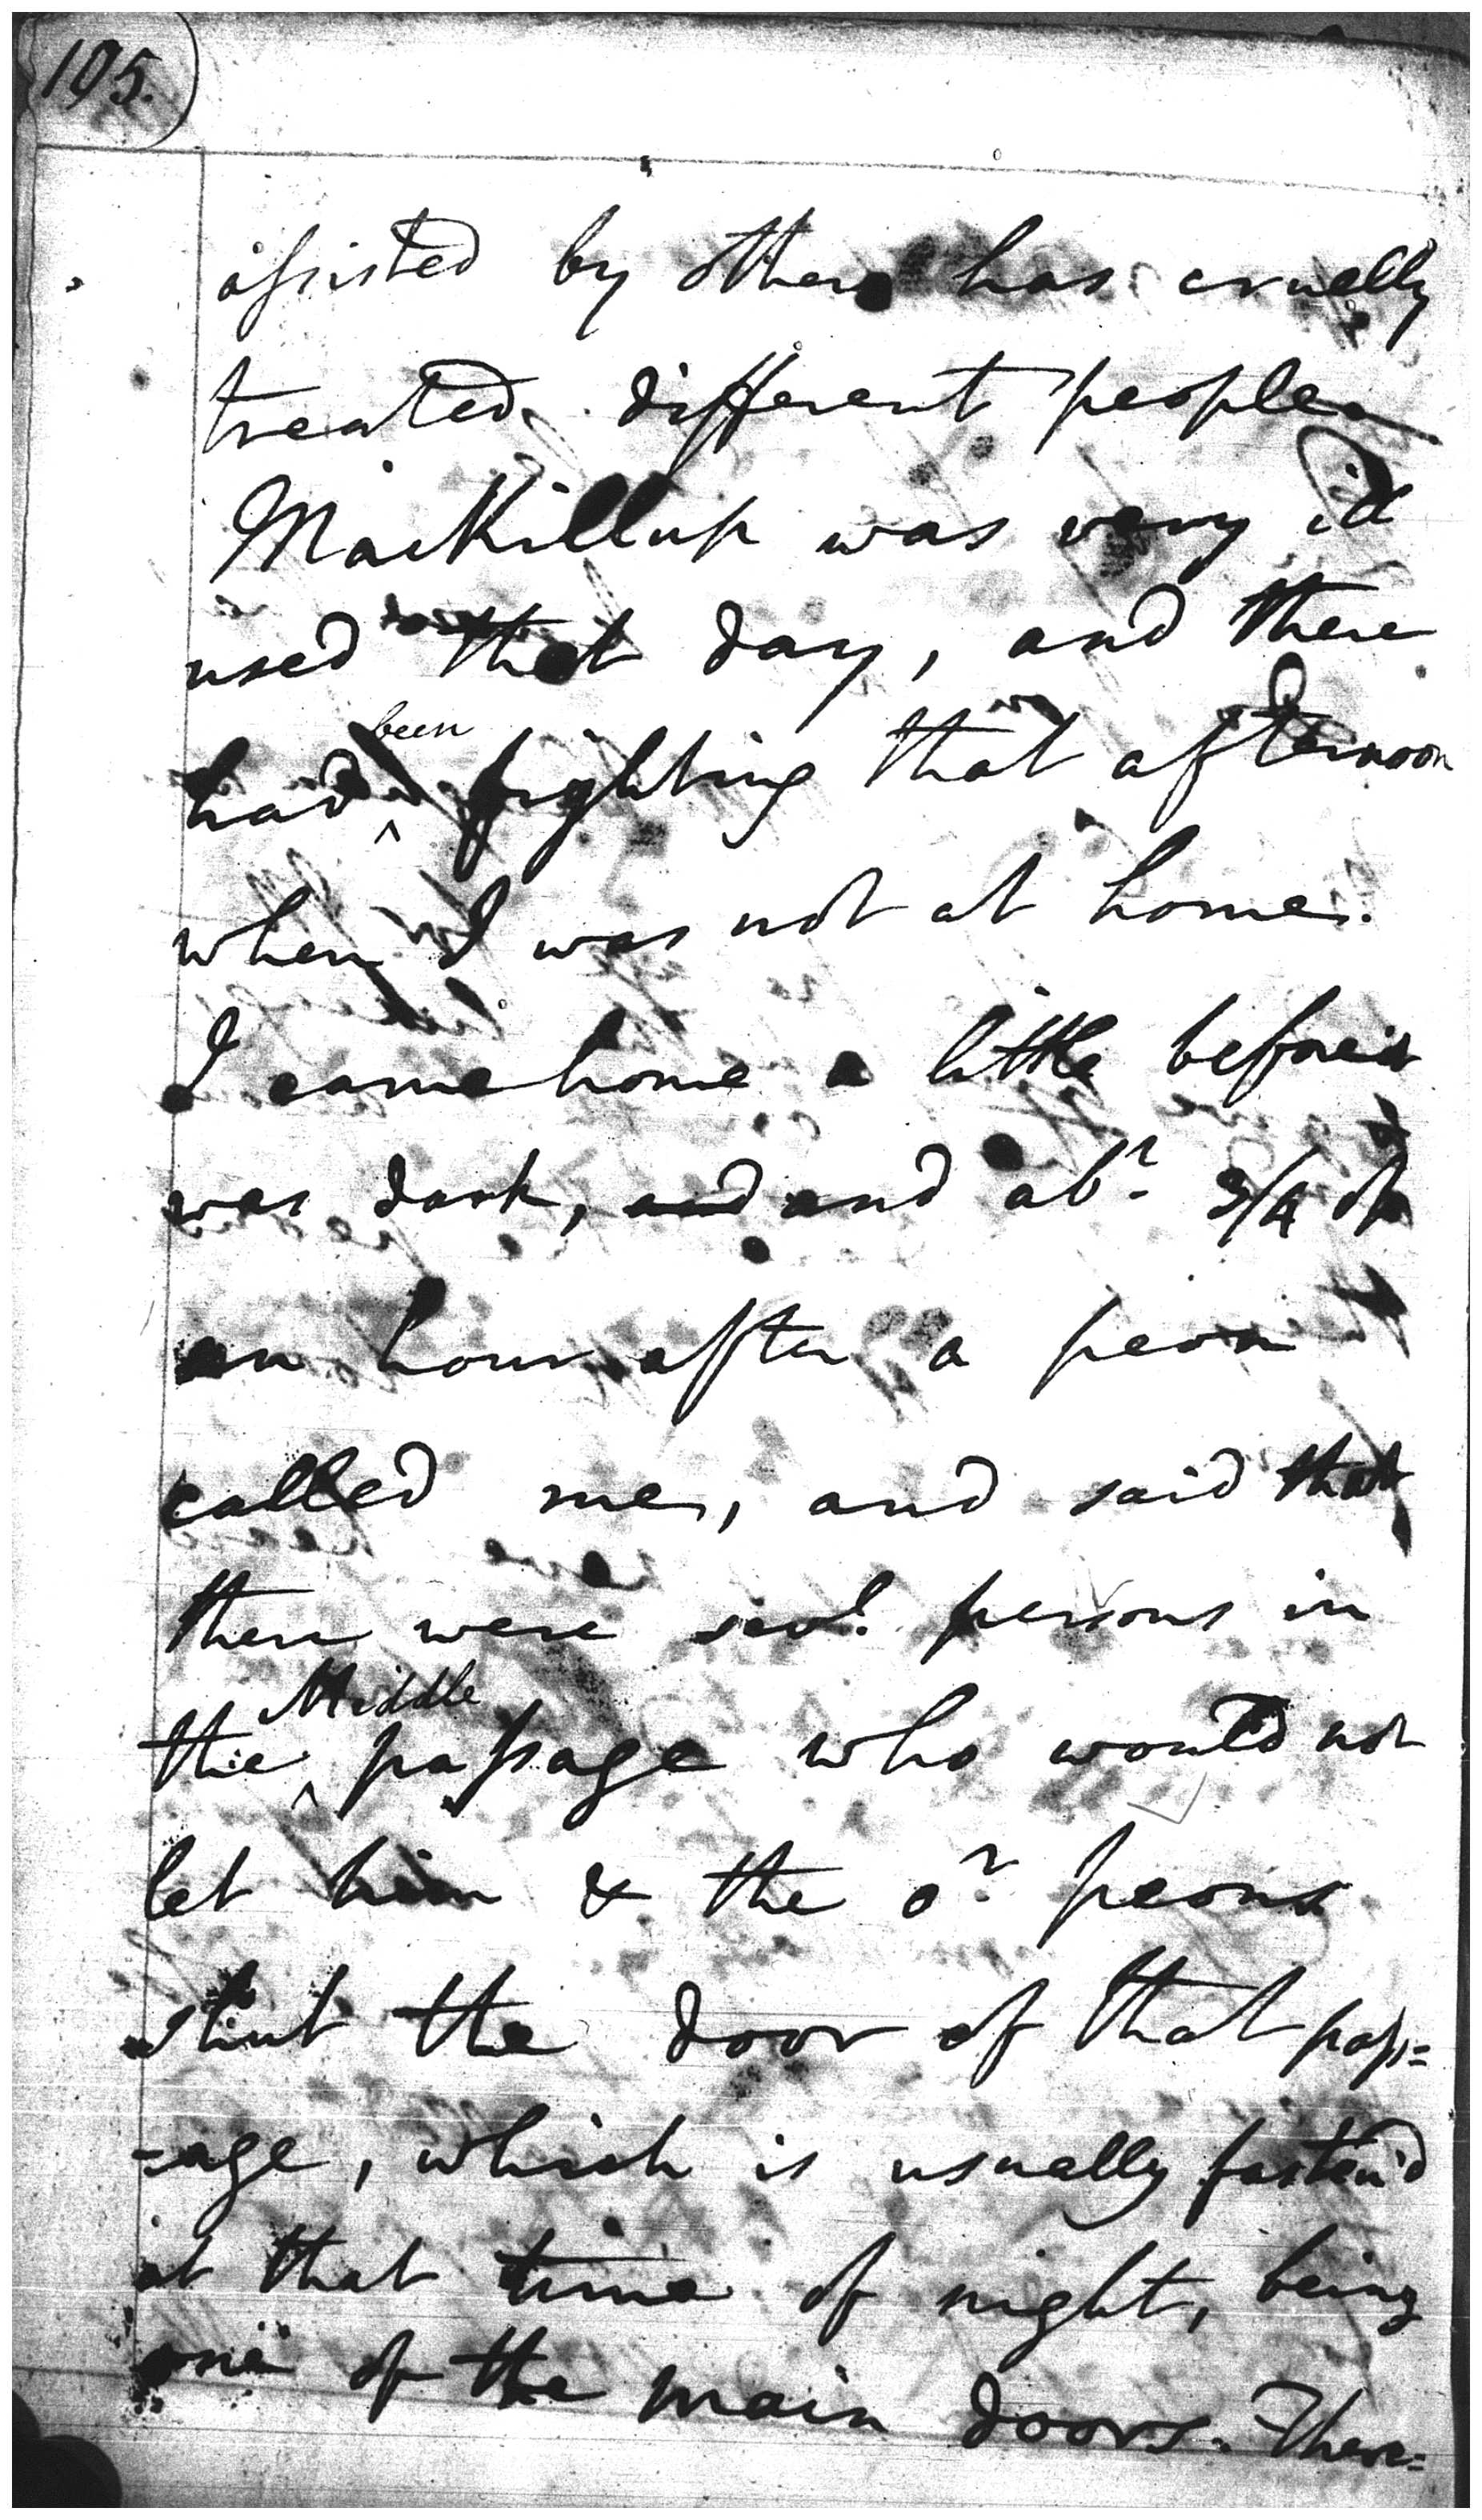 105.
assisted by others has cruelly
treated different people
MacKillup was very ill
used that day, and there
had been fighting that afternoon
when I was not at home.
I came home a little before it
was dark, and and abt. 3/4 of
an hour after a peon
called me, and said that
there were sevl. persons in
the Middle passage who would not
let him & the or. peons
shut the door of that pass=
=age, which is usually fasten'd
at that time of night, being
one of the main doors. There=